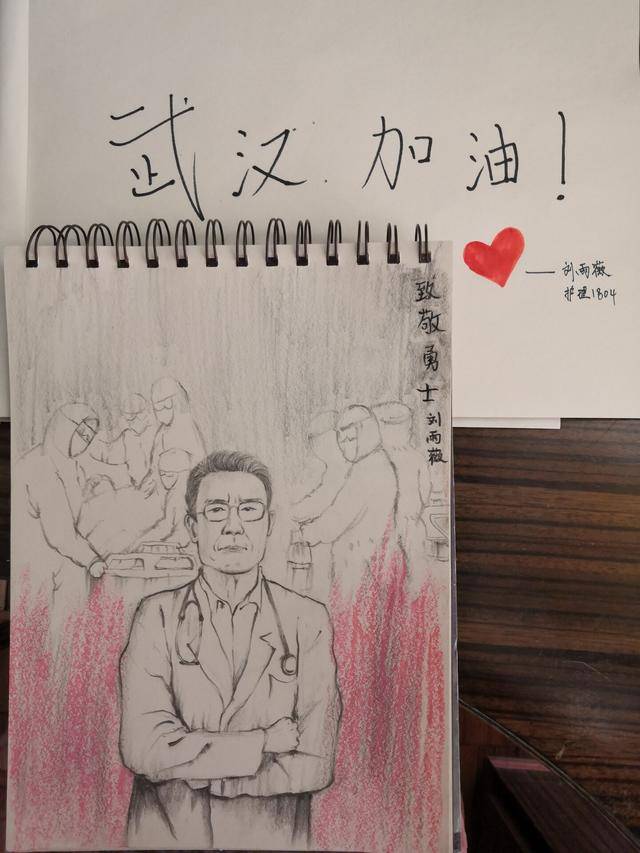 武汉加油!
— 刘雨薇
护理1804
致敬勇士 刘雨薇